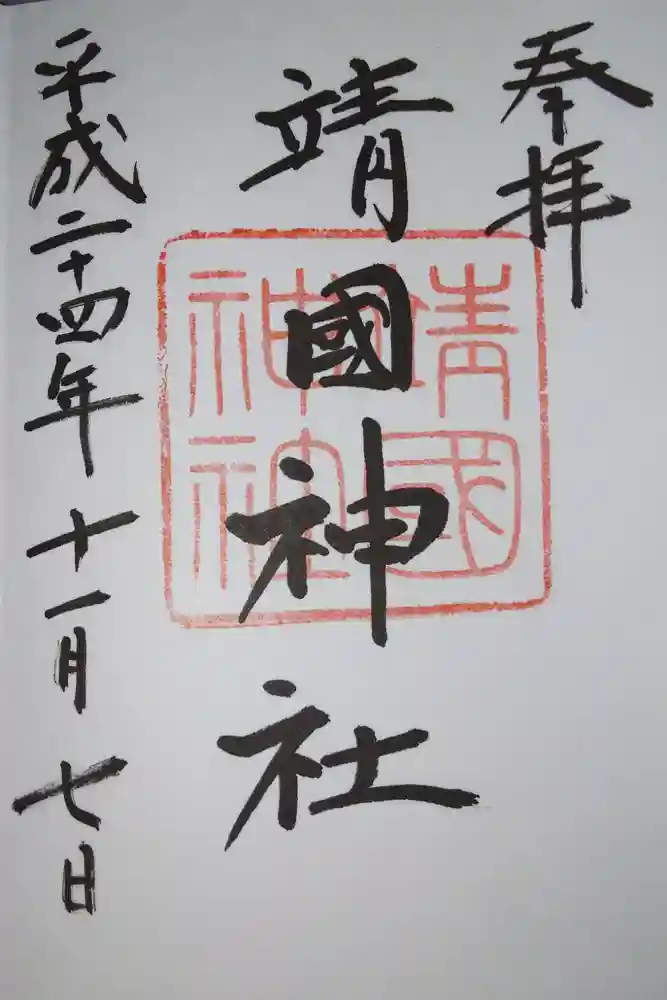 奉拝
靖國神社
靖國神社
平成二十四年十一月七日